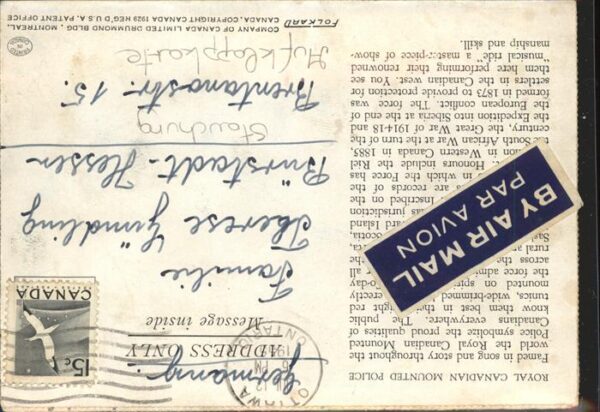 ROYAL CANADIAN MOUNTED POLICE
Famed in song and story throughout the
world the Royal Canadian Mounted
Police symbolize the proud qualities of
Canadians everywhere. The public
know them best in their red
tunics, wide-brimmed erectly
mounted on
the force all
across the the
rural
jurisdiction
inscribed on the
are records of the
in which the Force has
Honours include the Riel
in Western Canada in 1885,
the South African War at the turn of the
century, the Great War of 1914-18
the Expedition into Siberia at the end of
the European conflict. The force was
formed in 1873 to provide protection for
settlers in the Canadian west. You see
them here performing their renowned
"musical ride" a master-piece of show-
manship and skill.
BY AIR MAIL
PAR AVION
OTTAWA
ONTARIO
CANADA
15c
Germany
ADDRESS ONLY
Message inside
Familie
Therese Gündling
Bürstadt-Hessen
Brentanostr. 15.
Aufklappkarte
FOLKARD
COMPANY OF CANADA LIMITED DRUMMOND BLDG. MONTREAL,
CANADA, COPYRIGHT CANADA 1929 REG'D U.S.A. PATENT OFFICE